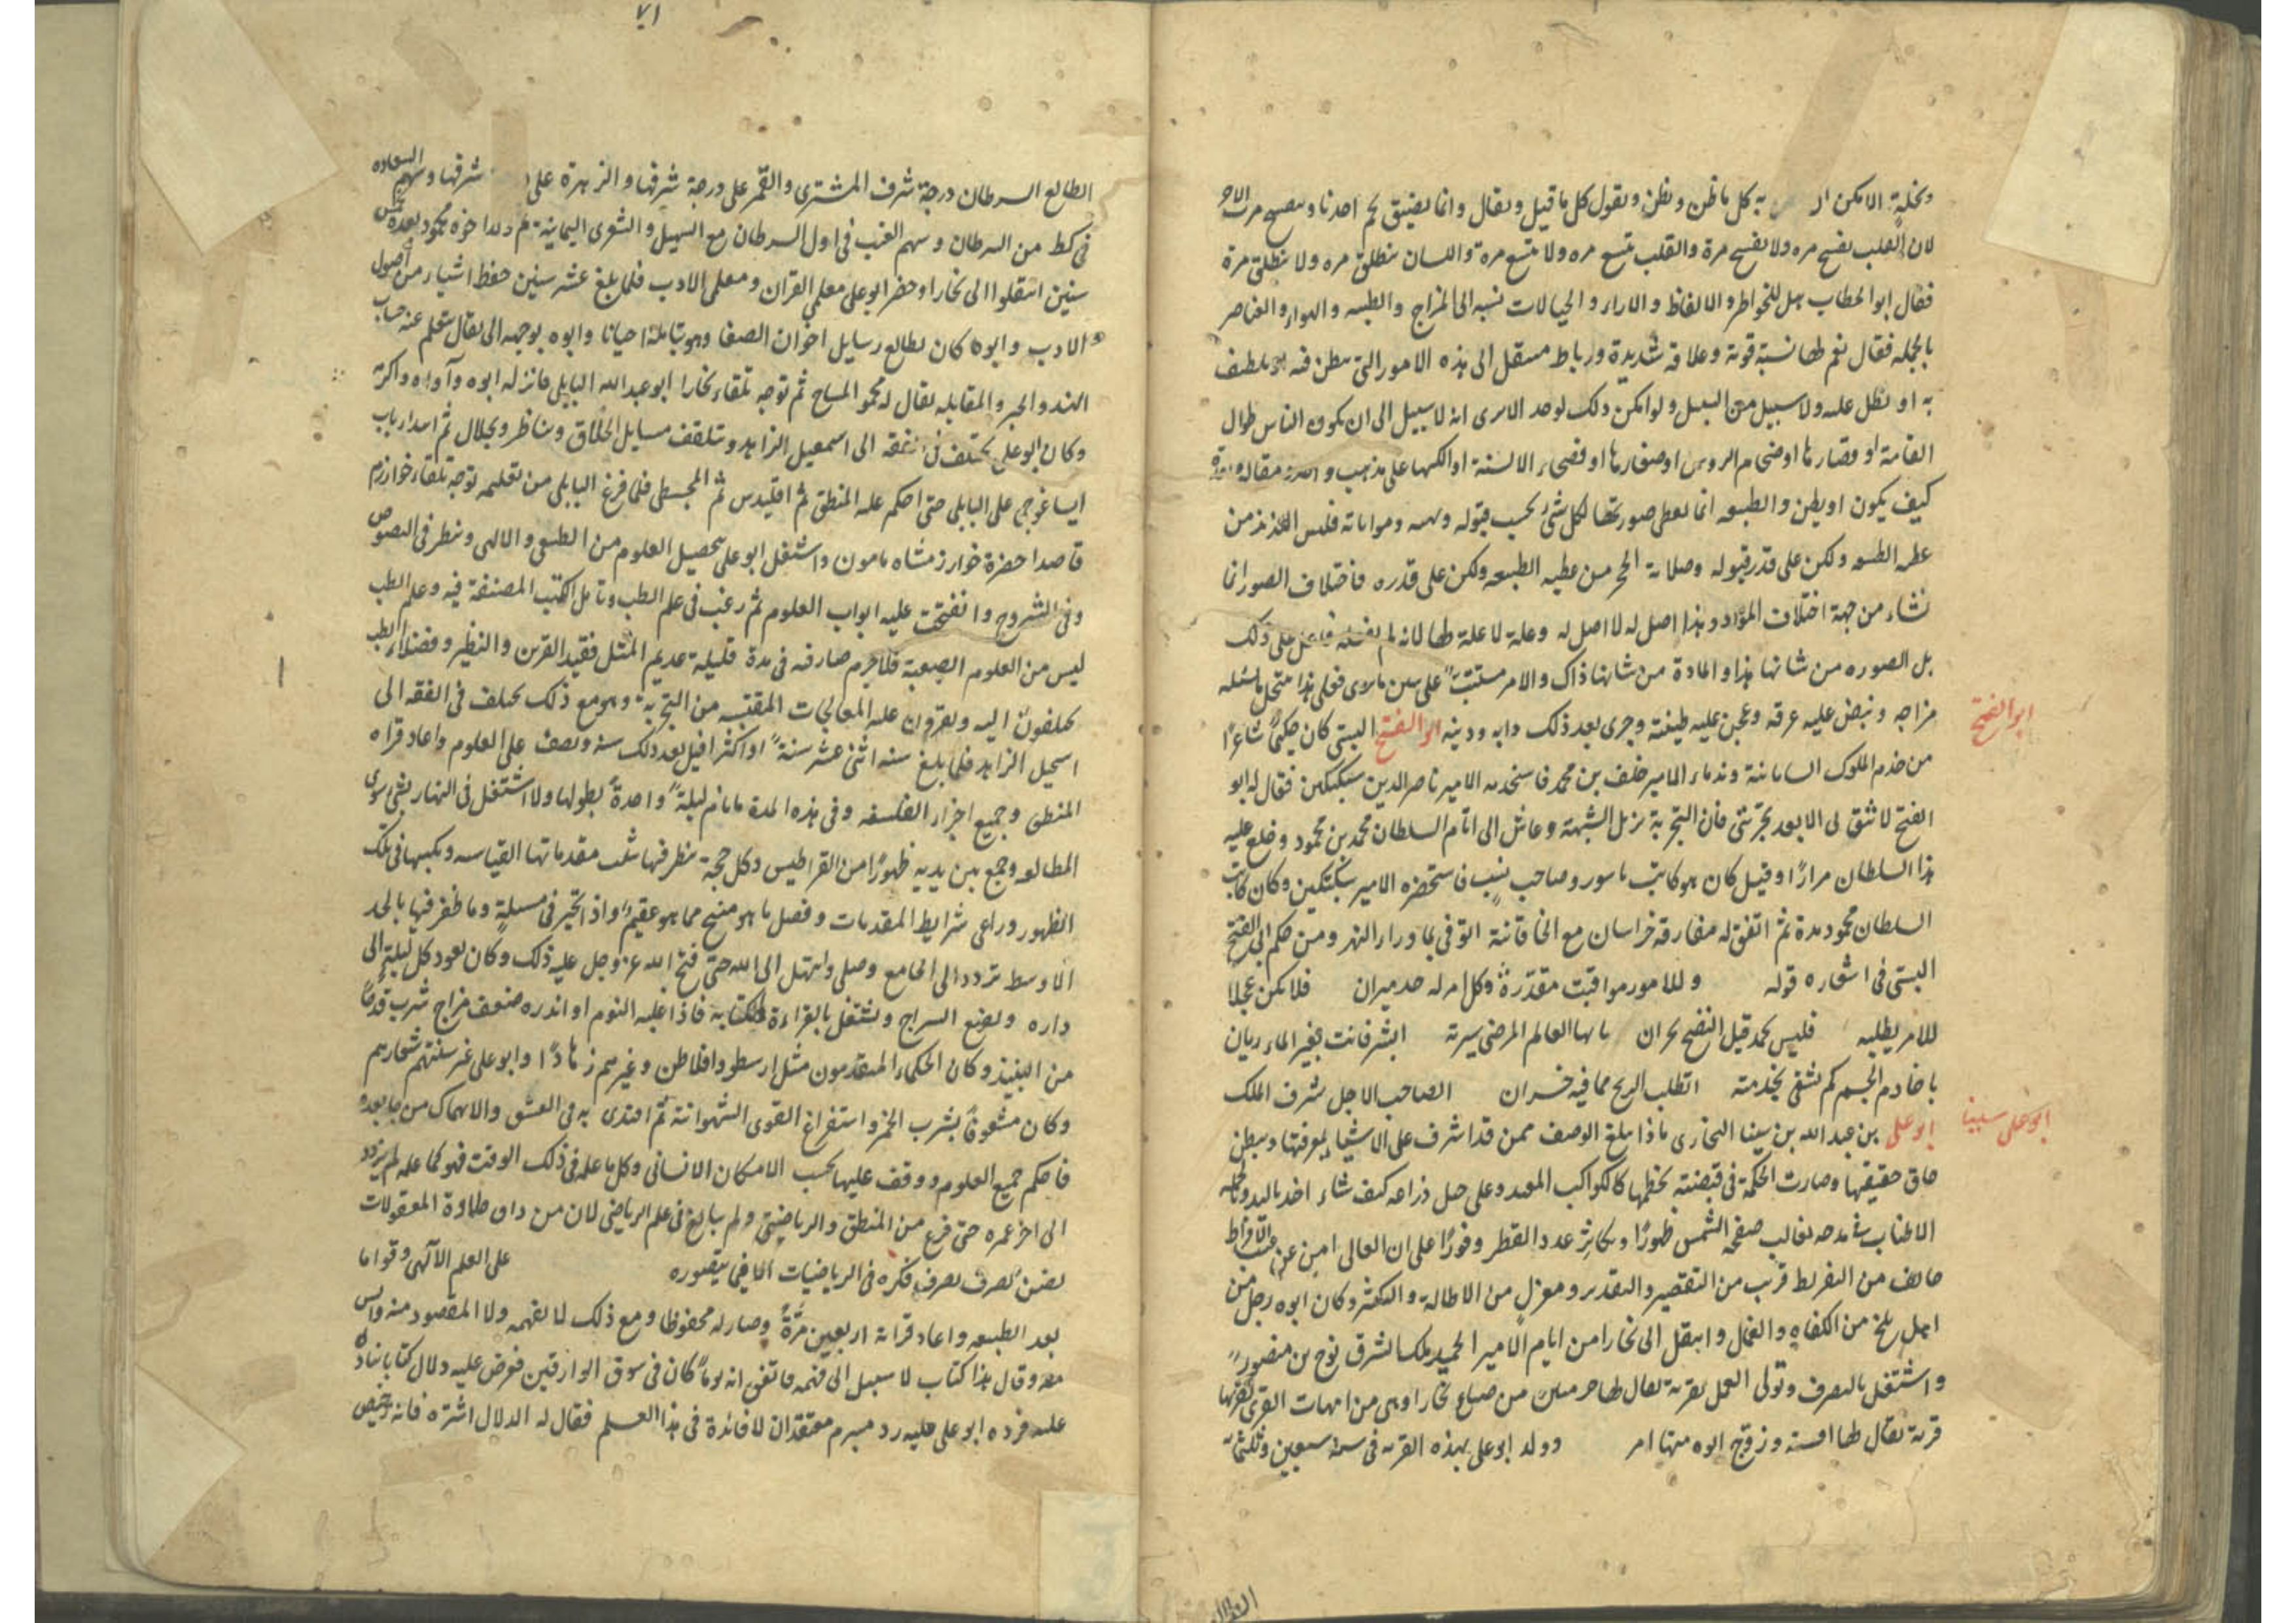 به كل ما ظن ونظن ونقول كل ما قيل ويقال وانما يضيق لحم احدنا
لان القلب يفسح مره ولا يفسح مرة والقلب يتسع مره ولا يتسع مرة واللسان ينطلق مره ولا ينطلق مرة
فقال ابو الخطاب هل للخواطر والالفاظ والاراء والخيالات نسبه الى المزاج والطبيعه والهواء والعناصر
بالجمله فقال نعم لها نسبة قوية وعلاقة شديدة ورباط الى هذه الامور التي
به او ولا سبيل من السبل ولو امكن ذلك لوجد الامر الى انه لا سبيل الى ان يكون الناس طوال
القامة او قصارها او ضخام الروس او صغارها او فصحاء الالسنة او الكنها على مذهب واحد ومقالة واحدة
كيف يكون او يظن والطبيعه انما تعطى صورتها لكل شئ بحسب قبوله
الطبيعه ولكن على قدر قبوله وصلابة الحجر من عطية الطبيعه ولكن على قدره فاختلاف الصور انما
نشاء من جهة اختلاف المواد وهذا اصل له لا اصل له وعلة لا علة لها لانه لم يفعله فاعل على ذلك
بل الصوره من شانها هذا والمادة من شانها ذاك والامر
مزاجه ونبض عليه عرقه وعجن عليه طينته وجرى بعد ذلك دابه ودينه ابو الفتح البستى كان حكيمًا شاعرًا
ابو الفتح
من خدم الملوك السامانية وندماء الامير خلف بن محمد فاستخدمه الامير ناصر الدين سبكتكين فقال له ابو
الفتح لا تثق لى الا بعد تجربتى فان التجربة تزيل الشبهة وعاش الى ايام السلطان محمد بن محمود وخلع عليه
هذا السلطان مرارًا وقيل كان هو كاتب وصاحب فاستحضره الامير سبكتكين وكان كاتب
السلطان محمود مدة ثم اتفق له مفارقة خراسان مع الخاقانية التوفى بما وراء النهر ومن حكم ابى الفتح
البستى فى اشعاره قوله وللامور مواقيت مقدرة وكل امر له حد وميزان فلا تكن عجلا
للامر يطلبه فليس يحمد قبل النضج بحران يا ايها العالم المرضى سيرته ابشر فانت بغير الماء ريان
يا خادم الجسم كم تشقى بخدمته اتطلب الربح مما فيه خسران الصاحب الاجل شرف الملك
ابو على سينا
ابو على بن عبد الله بن سينا البخارى ماذا يبلغ الوصف ممن قد اشرف على الاشياء بمعرفتها
حقيقتها وصارت الحكمة فى قبضته كالكواكب وعلى حبل ذراعه كيف شاء
الاطناب فى مدحه صفحة الشمس ظهورًا ويكاثر عدد القطر وفورًا على ان
من التفريط قريب من التقصير والتقدير ومعزل من الاطالة والتكثير وكان ابوه رجل من
اهل بلخ من الكفاه والعمال وانتقل الى بخارا من ايام الامير الحميد ملك الشرق نوح بن منصور
واشتغل بالتصرف وتولى العمل بقرية يقال لها من ضياع بخارا وهى من امهات القرى بقربها
قرية يقال لها افشنة وتزوج ابوه منها امر وولد ابو على بهذه القرية فى سنة سبعين وثلثمائة
٧١
الطالع السرطان درجة شرف المشترى والقمر على درجة شرفها والزهرة على شرفها وسهم السعادة
فى كط من السرطان وسهم الغيب فى اول السرطان مع السهيل والشعرى اليمانية ثم ولد اخوه محمود بعده بخمس
سنين انتقلوا الى بخارا وحضر ابو على معلمى القران ومعلمى الادب فلما بلغ عشر سنين حفظ اشياء من اصول
الادب وابوه كان يطالع رسايل اخوان الصفا وهو يتامله احيانا وابوه يوجهه الى بقال يتعلم عنه حساب
الهند والجبر والمقابله يقال له محمود المساح ثم توجه تلقاء بخارا ابو عبد الله الناتلى فانزله ابوه وآواه واكرمه
وكان ابو على يختلف فى الفقه الى اسمعيل الزاهد ويتلقف مسايل الخلاف ويناظر ويجادل ثم ابتدا بكتاب
ايساغوجى على الناتلى حتى احكم عليه المنطق ثم اقليدس ثم المجسطى فلما فرغ الناتلى من تعليمه توجه تلقاء خوارزم
قاصدا حضرة خوارزمشاه مامون واشتغل ابو على بتحصيل العلوم من الطبيعى والالهى ونظر فى النصوص
وفى الشروح وانفتحت عليه ابواب العلوم ثم رغب فى علم الطب وتامل الكتب المصنفة فيه وعلم الطب
ليس من العلوم الصعبة فلا جرم صار فيه فى مدة قليلة عديم المثل فقيد القرين والنظير وفضلاء الطب
يختلفون اليه ويقرؤن عليه المعالجات المقتبسه من التجربة وهو مع ذلك يختلف فى الفقه الى
اسمعيل الزاهد فلما بلغ سنه اثنى عشر سنة او اكثر اقبل بعد ذلك سنه ونصف على العلوم واعاد قراءة
المنطق وجميع اجزاء الفلسفه وفى هذه المدة ما نام ليلة واحدة بطولها ولا اشتغل فى النهار بشئ سوى
المطالعه وجمع بين يديه ظهورًا من القراطيس وكل حجة ينظر فيها يثبت مقدماتها القياسيه ويكتبها فى تلك
الظهور وراعى شرايط المقدمات وفصل ما هو منتج مما هو عقيم واذا تحير فى مسئلة وما ظفر فيها بالحد
الاوسط تردد الى الجامع وصلى وابتهل الى الله حتى فتح الله عز وجل عليه ذلك وكان يعود كل ليلة الى
داره ويضع السراج ويشتغل بالقراءة والكتابة فاذا غلبه النوم او انذره ضعف مزاج شرب قدحًا
من النبيذ وكان الحكماء المتقدمون مثل ارسطو وافلاطن وغيرهم زهادًا وابو على غير سنتهم وشعارهم
وكان مشعوفًا بشرب الخمر واستفراغ القوى الشهوانية ثم اقتدى به فى الفسق والانهماك من جا بعده
فاحكم جميع العلوم ووقف عليها بحسب الامكان الانسانى وكل ما علمه فى ذلك الوقت فهو كما علمه لم يزدد
الى اخر عمره حتى فرغ من المنطق والرياضى ولم يبالغ فى علم الرياضى لان من ذاق حلاوة المعقولات
يضن بصرف فكره فى الرياضيات التى يتصوره على العلم الآلهى وقرا ما
بعد الطبيعه واعاد قراءته اربعين مرة وصار له محفوظا ومع ذلك لا يفهمه ولا المقصود منه وايس
منه وقال هذا كتاب لا سبيل الى فهمه فاتفق انه يومًا كان فى سوق الوراقين فعرض عليه دلال كتابا ينادى
عليه فرده ابو على عليه رد مبرم معتقد ان لا فائدة فى هذا العلم فقال له الدلال اشتره فانه رخيص